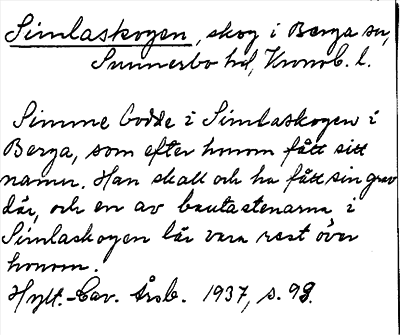 Simlaskogen, skog i Berga sn,
Sunnerbo hd, Kronob. l.
Simme bodde i Simlaskogen i
Berga, som efter honom fått sitt
namn. Han skall och ha fått sin grav
där, och en av bautastenarna i
Simlaskogen lär vara rest över
honom.
Hylt.-Cav. Årsb. 1937, s. 98.